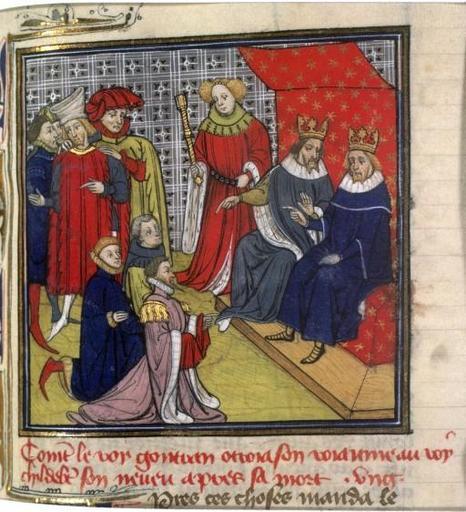 Comẽt le roy gontran ottroia son roiaume au roy
childebt̃ son neueu apres sa mort .
Pres ces choses manda le